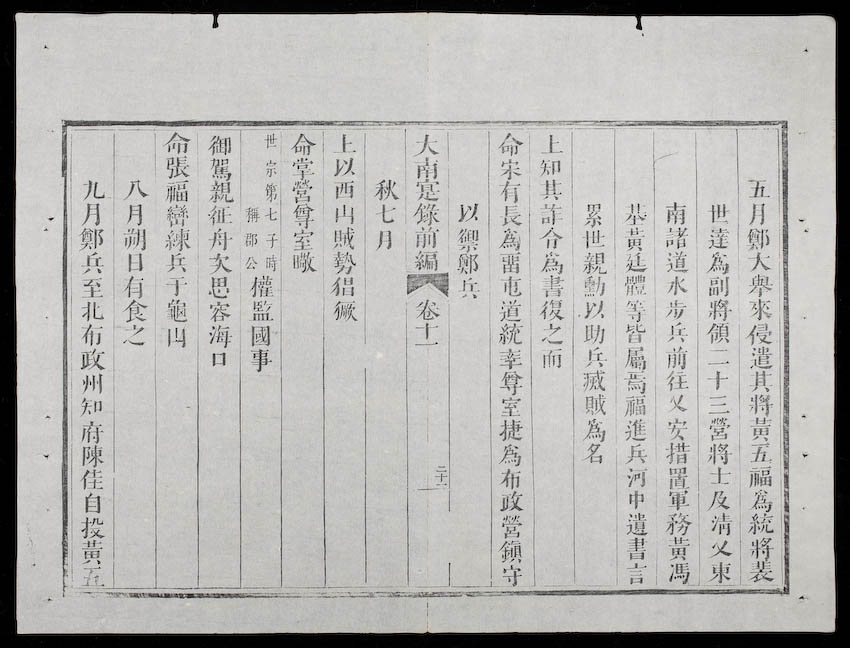 五月鄭大舉來侵遣其將黃五福爲統將裴
世達爲副將領二十三營將士及清乂東
南諸道水步兵前往乂安措置軍務黃馮
基黃廷體等皆屬焉福進兵河中遺書言
累世親勳以助兵滅賊爲名
上知其詐令爲書復之而
命宋有長爲畱屯道統率尊室捷爲布政營鎮守
以禦鄭兵
大南寔錄前編 卷十一 二十一
秋七月
上以西山賊勢猖獗
命掌營尊室暾
世宗第七子時稱郡公權監國事
御駕親征舟次思容海口
命張福巒練兵于龜山
八月朔日有食之
九月鄭兵至北布政州知府陳佳自投黃五